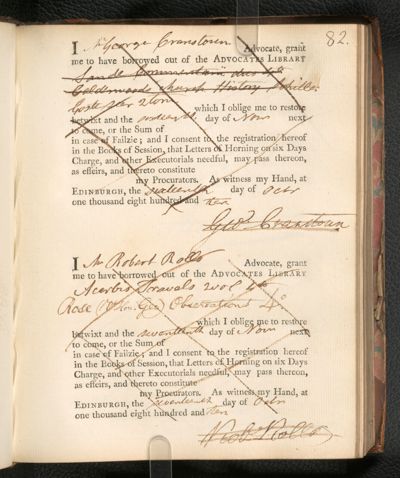 82.
I Mr George Cranstoun Advocate, grant
me to have borrowed out of the ADVOCATES LIBRARY
Calderwoods Church History
which I oblige me to restore
betwixt and the sixteenth day of Novr next
to come, or the Sum of
in case of Failzie; and I consent to the registration hereof
in the Books of Session, that Letters of Horning on six Days
Charge, and other Executorials needful, may pass thereon,
as effeirs, and thereto constitute
my Procurators. As witness my Hand, at
EDINBURGH, the sixteenth day of Octr
one thousand eight hundred and ten
Geo. Cranstoun
I Mr Robert Rollo Advocate, grant
me to have borrowed out of the ADVOCATES LIBRARY
Acerbi's Travels 2 vol 4to
Rose (Rt Hon. Geo) Observations 4o
which I oblige me to restore
betwixt and the seventeenth day of Novr next
to come, or the Sum of
in case of Failzie; and I consent to the registration hereof
in the Books of Session, that Letters of Horning on six Days
Charge, and other Executorials needful, may pass thereon,
as effeirs, and thereto constitute
my Procurators. As witness my Hand, at
EDINBURGH, the seventeenth day of Octr
one thousand eight hundred and ten
Rollo